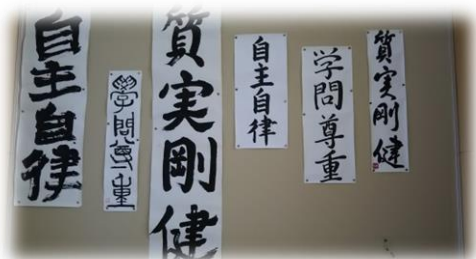 自主自律
學問尊重
質実剛健
自主自律
学問尊重
質実剛健